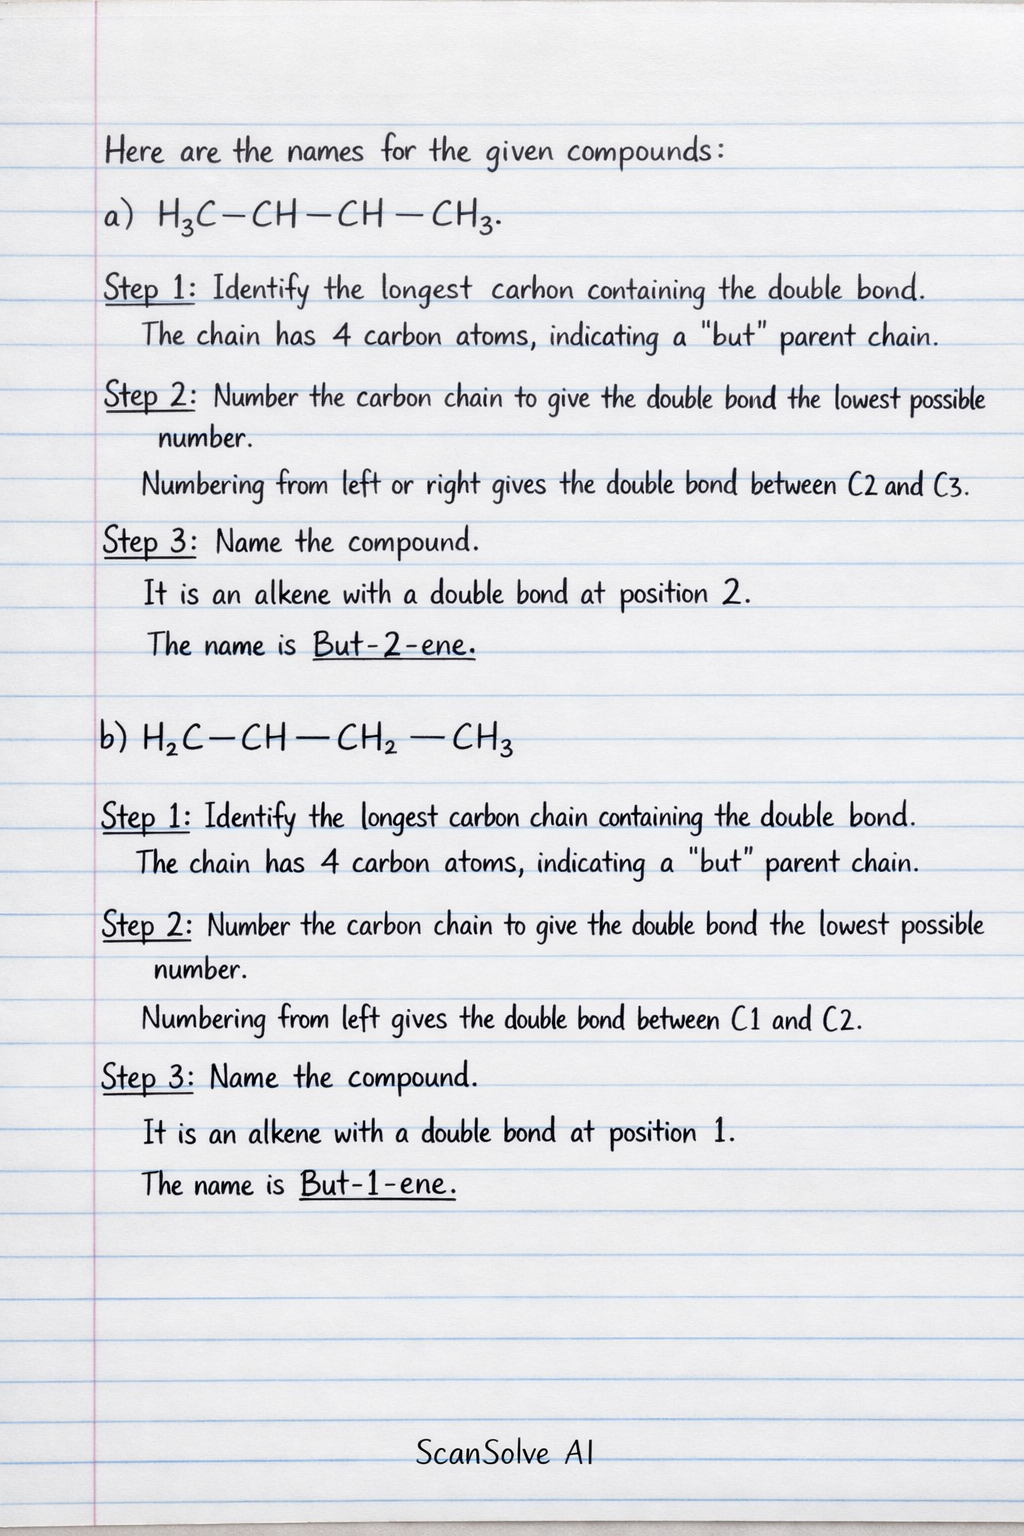 Here are the names for the given compounds:
a) H₃C—CH—CH—CH₃.
Step 1: Identify the longest carhon containing the double bond.
The chain has 4 carbon atoms, indicating a "but" parent chain.
Step 2: Number the carbon chain to give the double bond the lowest possible
number.
Numbering from left or right gives the double bond between C2 and C3.
Step 3: Name the compound.
It is an alkene with a double bond at position 2.
The name is But-2-ene.
b) H₂C—CH—CH₂—CH₃
Step 1: Identify the longest carbon chain containing the double bond.
The chain has 4 carbon atoms, indicating a "but" parent chain.
Step 2: Number the carbon chain to give the double bond the lowest possible
number.
Numbering from left gives the double bond between C1 and C2.
Step 3: Name the compound.
It is an alkene with a double bond at position 1.
The name is But-1-ene.
ScanSolve AI